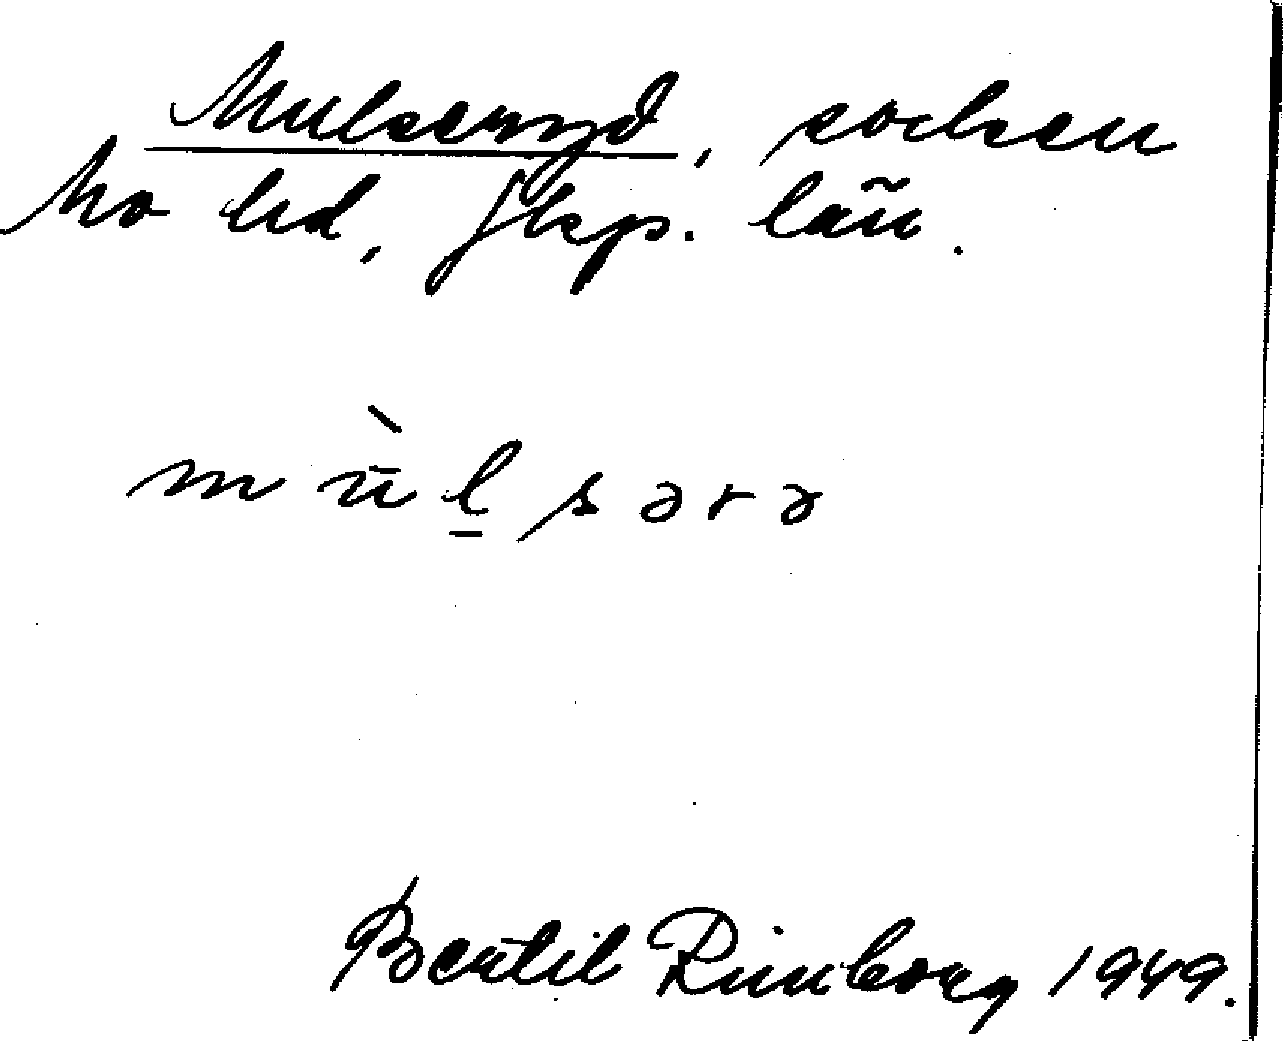 Mulseryd, socken
Mo hd, Jkp. län.
mū̀l̠sərə
Bertil Rimborg 1949.